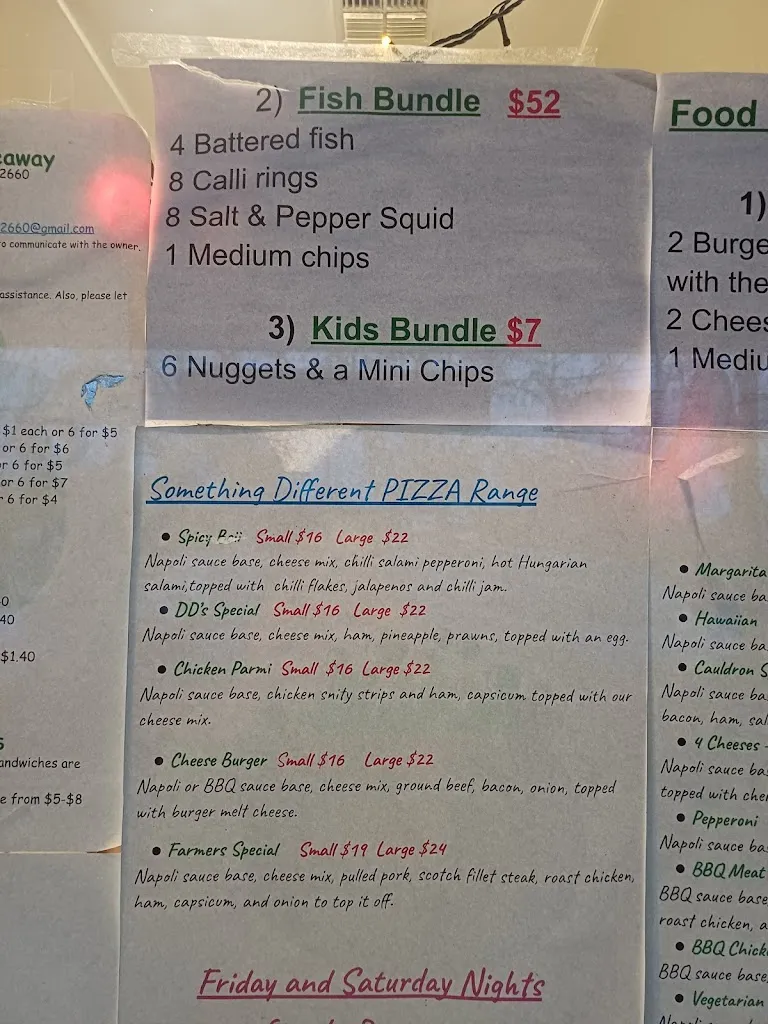 eaway
2660
2660@gmail.com
to communicate with the owner.
assistance. Also, please let
$1 each or 6 for $5
or 6 for $6
or 6 for $5
or 6 for $7
6 for $4
0
40
$1.40
S
andwiches are
e from $5-$8
2) Fish Bundle $52
4 Battered fish
8 Calli rings
8 Salt & Pepper Squid
1 Medium chips
3) Kids Bundle $7
6 Nuggets & a Mini Chips
Something Different PIZZA Range
• Spicy Small $16 Large $22
Napoli sauce base, cheese mix, chilli salami pepperoni, hot Hungarian
salami,topped with chilli flakes, jalapenos and chilli jam.
• DD's Special Small $16 Large $22
Napoli sauce base, cheese mix, ham, pineapple, prawns, topped with an egg.
• Chicken Parmi Small $16 Large $22
Napoli sauce base, chicken snity strips and ham, capsicum topped with our
cheese mix.
• Cheese Burger Small $16 Large $22
Napoli or BBQ sauce base, cheese mix, ground beef, bacon, onion, topped
with burger melt cheese.
• Farmers Special Small $19 Large $24
Napoli sauce base, cheese mix, pulled pork, scotch fillet steak, roast chicken,
ham, capsicum, and onion to top it off.
Friday and Saturday Nights
Food
1)
2 Burge
with the
2 Chees
1 Mediu
• Margarita
Napoli sauce ba
• Hawaiian
Napoli sauce ba
• Cauldron S
Napoli sauce ba
bacon, ham, sal
• 4 Cheeses -
Napoli sauce ba
topped with che
• Pepperoni
Napoli sauce ba
• BBQ Meat
BBQ sauce base
roast chicken, a
• BBQ Chick
BBQ sauce base,
• Vegetarian